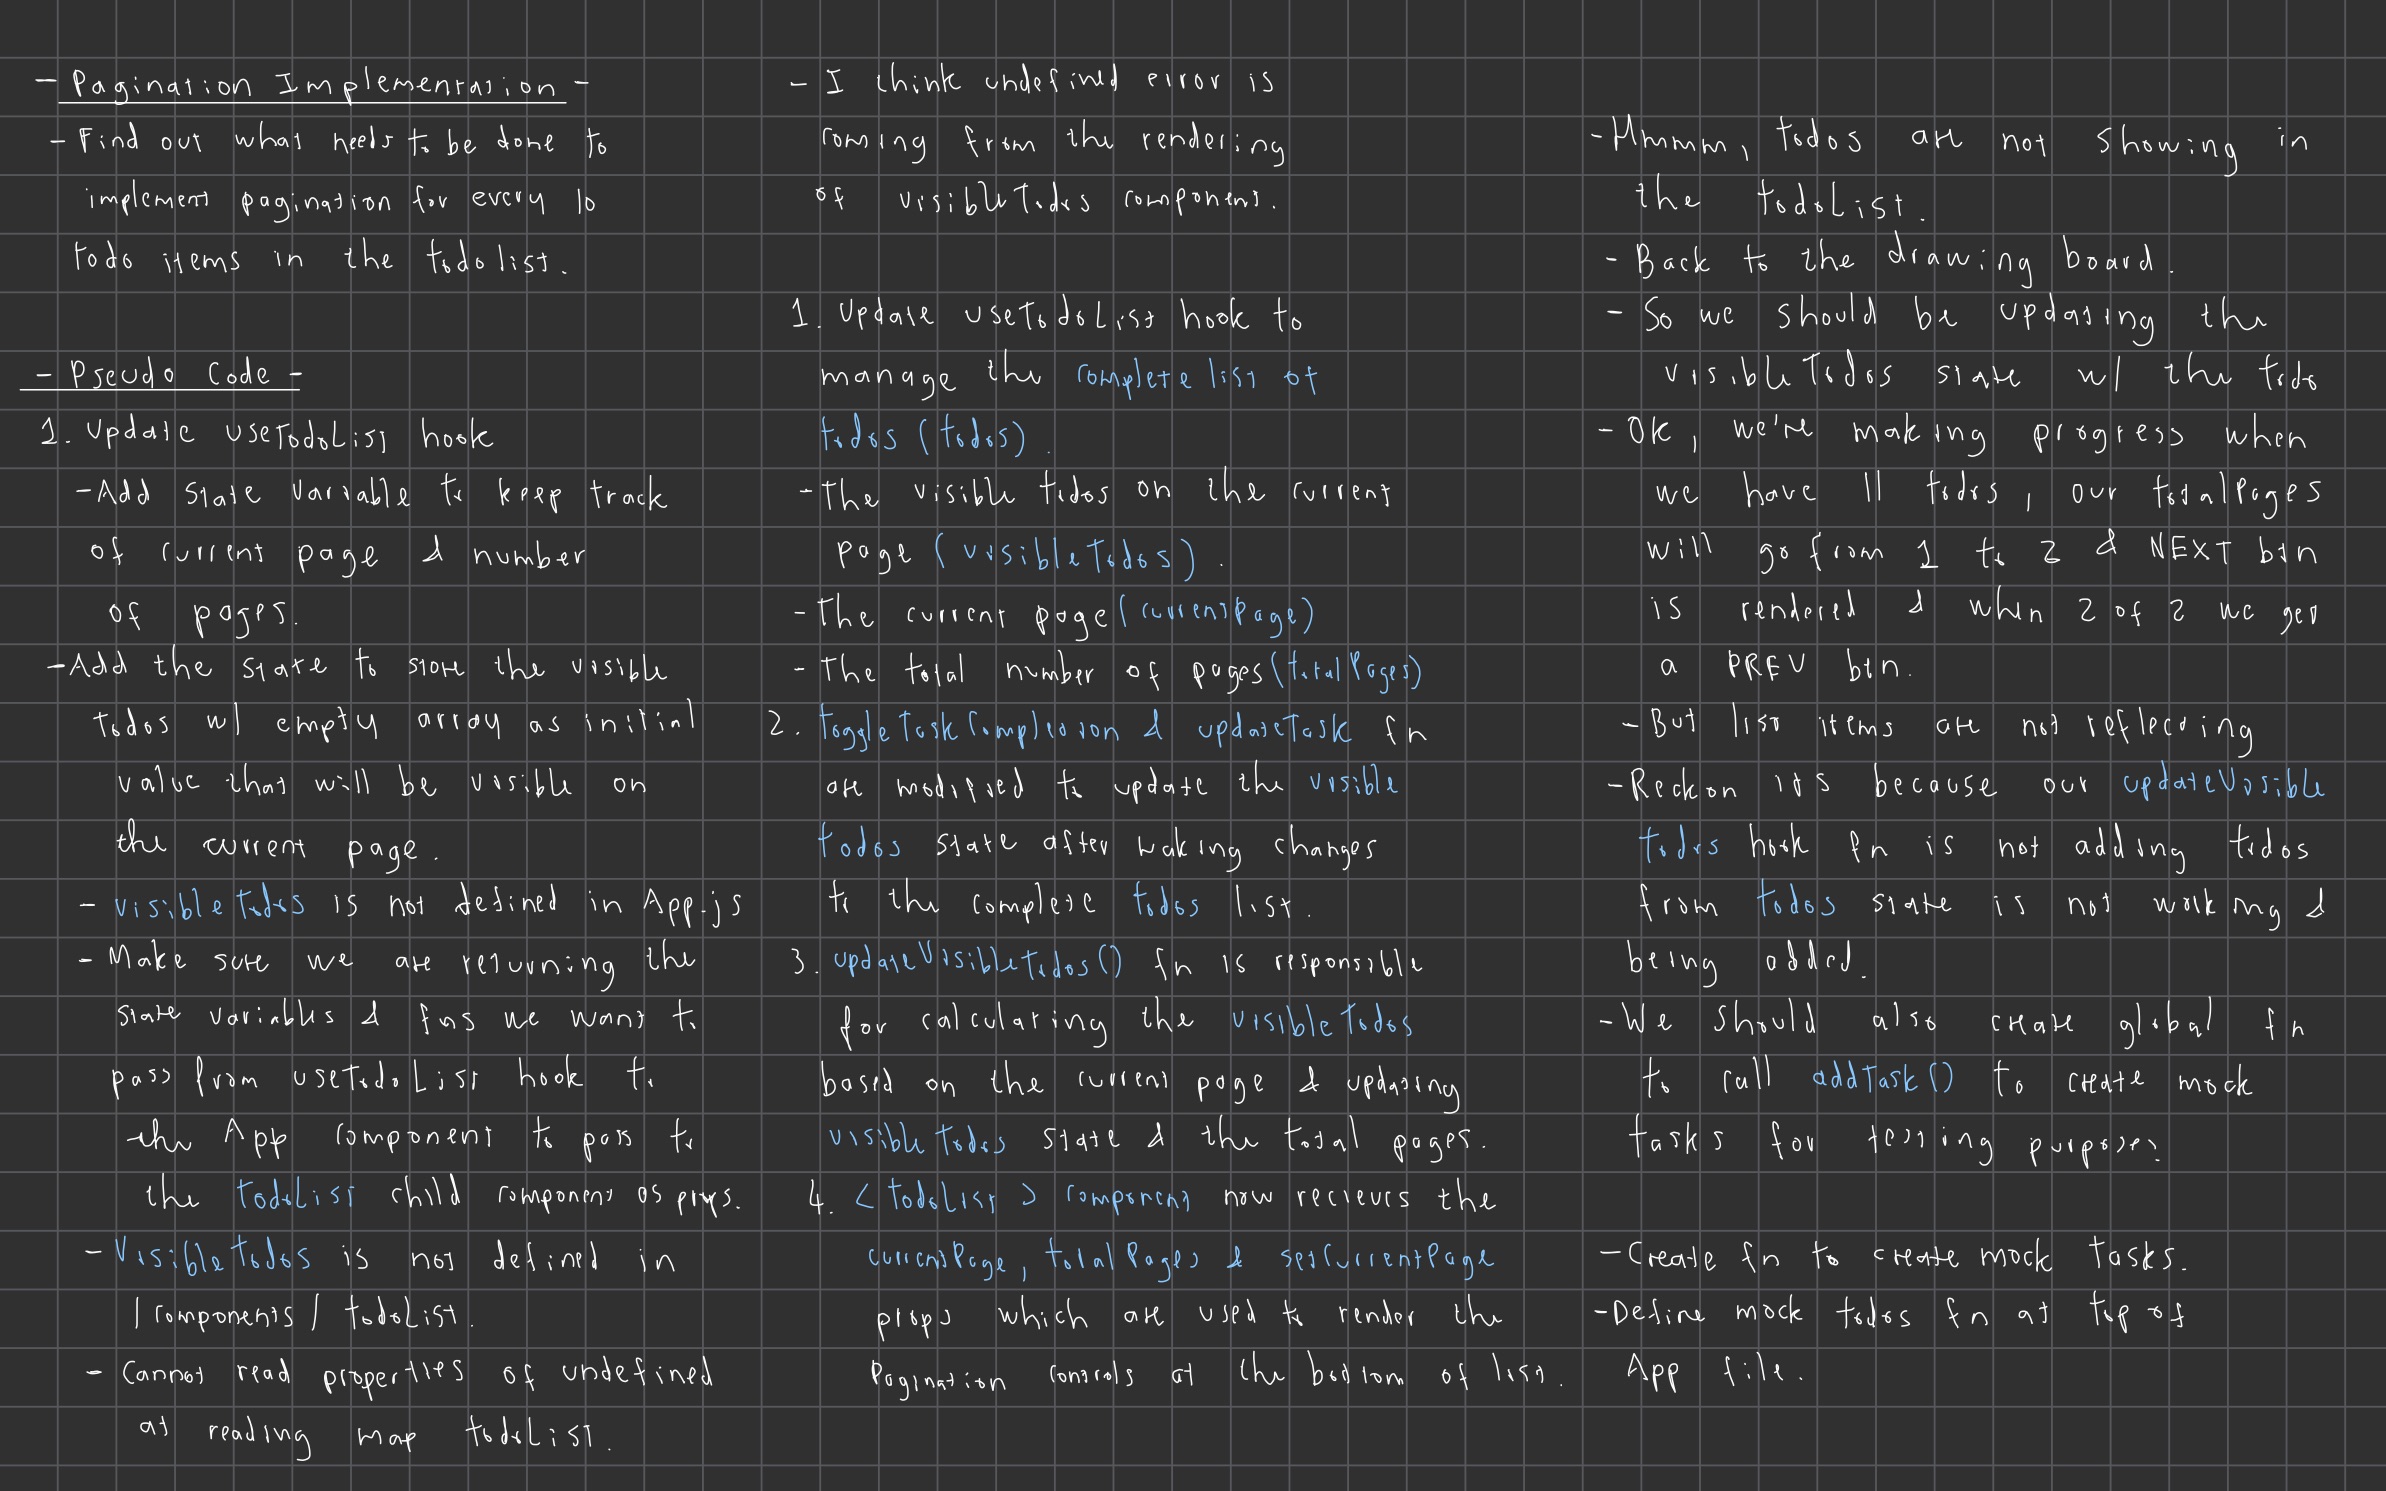 - Pagination Implementation -
- Find out what needs to be done to
implement pagination for every 10
todo items in the todolist.
- Pseudo Code -
1. Update useTodoList hook
- Add state variable to keep track
of current page & number
of pages.
- Add the state to store the visible
todos w/ empty array as initial
value that will be visible on
the current page.
- visibleTodos is not defined in App.js
- Make sure we are returning the
state variables & fns we want to
pass from useTodoList hook to
the App component to pass to
the todoList child component as props.
- VisibleTodos is not defined in
/components/todoList.
- Cannot read properties of undefined
at reading map todoList.
- I think undefined error is
coming from the rendering
of visibleTodos component.
1. Update useTodoList hook to
manage the complete list of
todos (todos).
- The visible todos on the current
page (visibleTodos).
- The current page (currentPage)
- The total number of pages (totalPages)
2. toggleTaskCompletion & updateTask fn
are modified to update the visible
todos state after making changes
to the complete todos list.
3. updateVisibleTodos() fn is responsible
for calculating the visibleTodos
based on the current page & updating
visibleTodos state & the total pages.
4. <todoList> component now recieves the
currentPage, totalPages & setCurrentPage
props which are used to render the
Pagination controls at the bottom of list.
- Hmmm, todos are not showing in
the todoList.
- Back to the drawing board.
- So we should be updating the
visibleTodos state w/ the todo
- Ok, we're making progress when
we have 11 todos, our totalPages
will go from 1 to 2 & NEXT btn
is rendered & when 2 of 2 we get
a PREV btn.
- But list items are not reflecting
- Reckon its because our updateVisible
todos hook fn is not adding todos
from todos state is not working &
being added.
- We should also create global fn
to call addTask() to create mock
tasks for testing purposes
- Create fn to create mock tasks.
- Define mock todos fn at top of
App file.